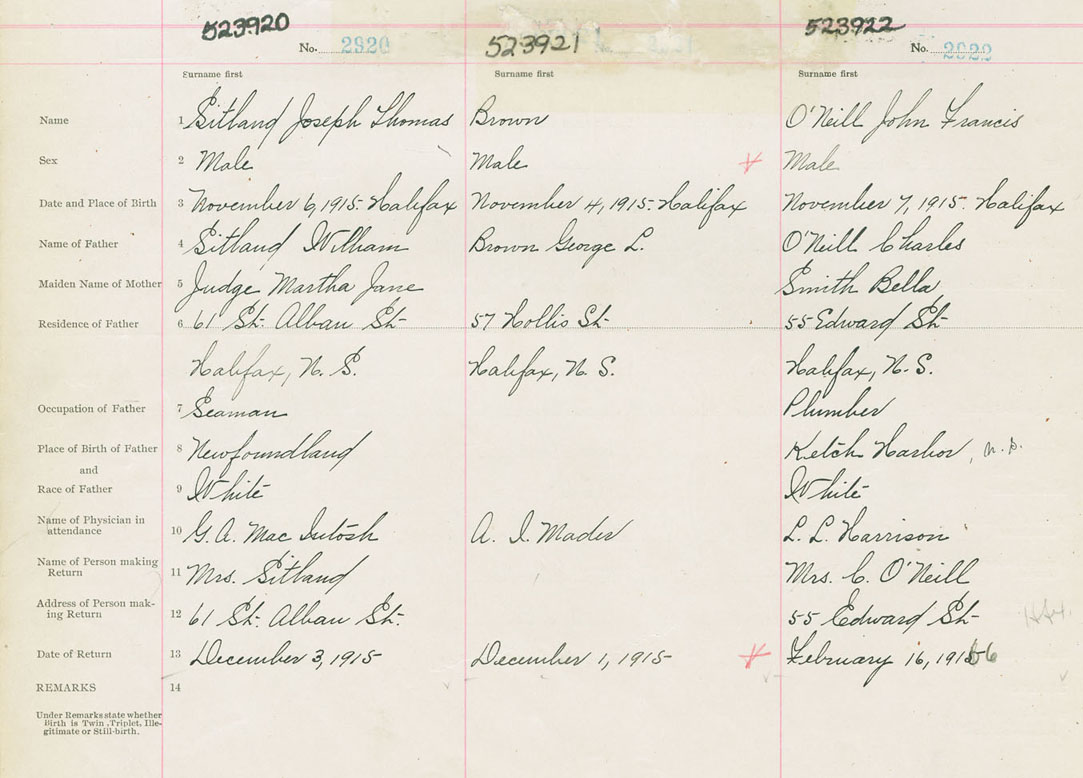 523920 523921 523922
No. 2920 No. 2922
Surname first Surname first Surname first
Name 1 Sitland Joseph Thomas Brown O'Neill John Francis
Sex 2 Male Male Male
Date and Place of Birth 3 November 6, 1915. Halifax November 4, 1915. Halifax November 7, 1915. Halifax
Name of Father 4 Sitland William Brown George L. O'Neill Charles
Maiden Name of Mother 5 Judge Martha Jane Smith Bella
Residence of Father 6 61 St. Alban St. 57 Hollis St. 55 Edward St.
Halifax, N. S. Halifax, N. S. Halifax, N. S.
Occupation of Father 7 Seaman Plumber
Place of Birth of Father 8 Newfoundland Ketch Harbor, N.S.
and
Race of Father 9 White White
Name of Physician in
attendance 10 G. A. MacIntosh A. I. Mader L. L. Harrison
Name of Person making
Return 11 Mrs. Sitland Mrs. C. O'Neill
Address of Person mak-
ing Return 12 61 St. Alban St. 55 Edward St.
Date of Return 13 December 3, 1915 December 1, 1915 February 16, 1916
REMARKS 14
Under Remarks state whether
Birth is Twin, Triplet, Ille-
gitimate or Still-birth.